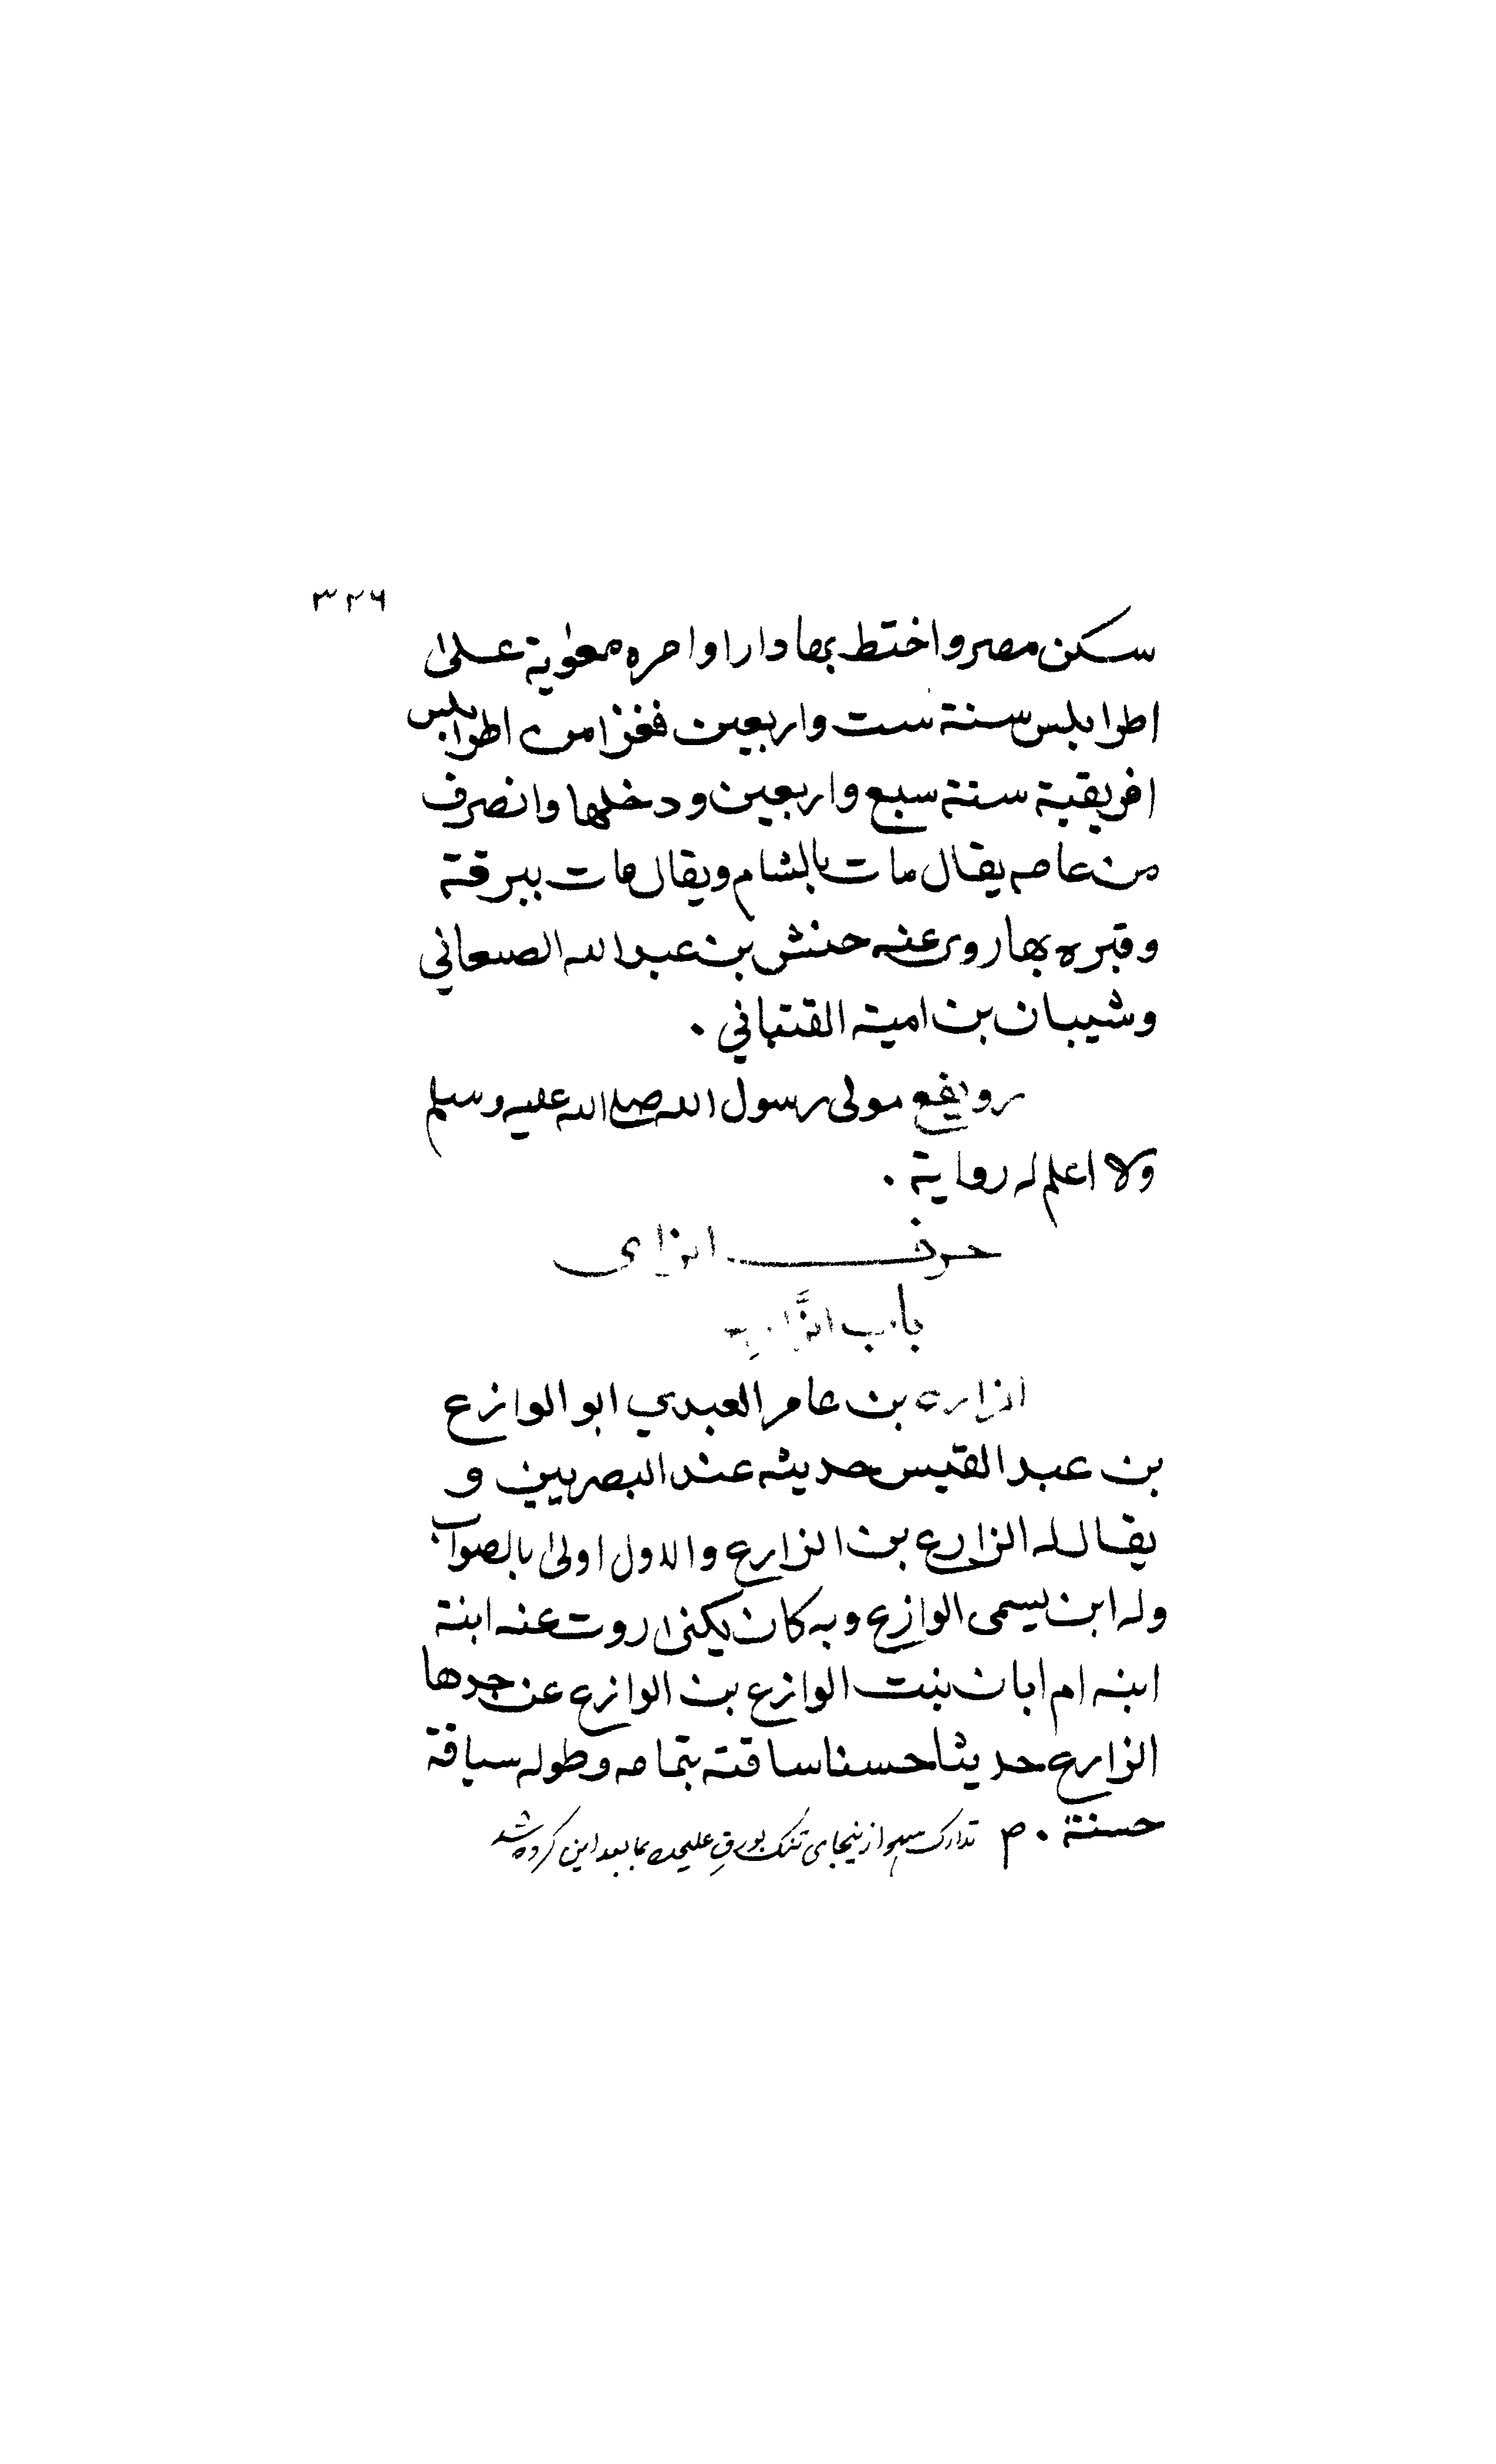 ٣٢٦
سكن مصر واختط بها دارا وامره معوية على
اطرابلس سنة ست واربعين فغزا من اطرابلس
افريقية سنة سبع واربعين ودخلها وانصرف
من عامه يقال مات بالشام ويقال مات ببرقة
وقبره بها روى عنه حنش بن عبد الله الصنعاني
وشيبان بن امية القتباني .
رويفع مولى رسول الله صلى الله عليه وسلم
ولا اعلم له رواية .
حرف الزاى
باب
الزارع بن عامر العبدي ابو الوازع
بن عبد القيس حديثه عند البصريين و
يقال له الزارع بن الزارع والاول اولى بالصواب
وله ابن يسمى الوازع وبه كان يكنى روت عنه ابنة
ابنه ام ابان بنت الوازع بن الوازع عن جدها
الزارع حديثا حسنا ساقته بتمامه وطوله سياقة
حسنة . م تدارك سهو ازينجاى تنك بورق عليحده بما بعد اين كرده شد